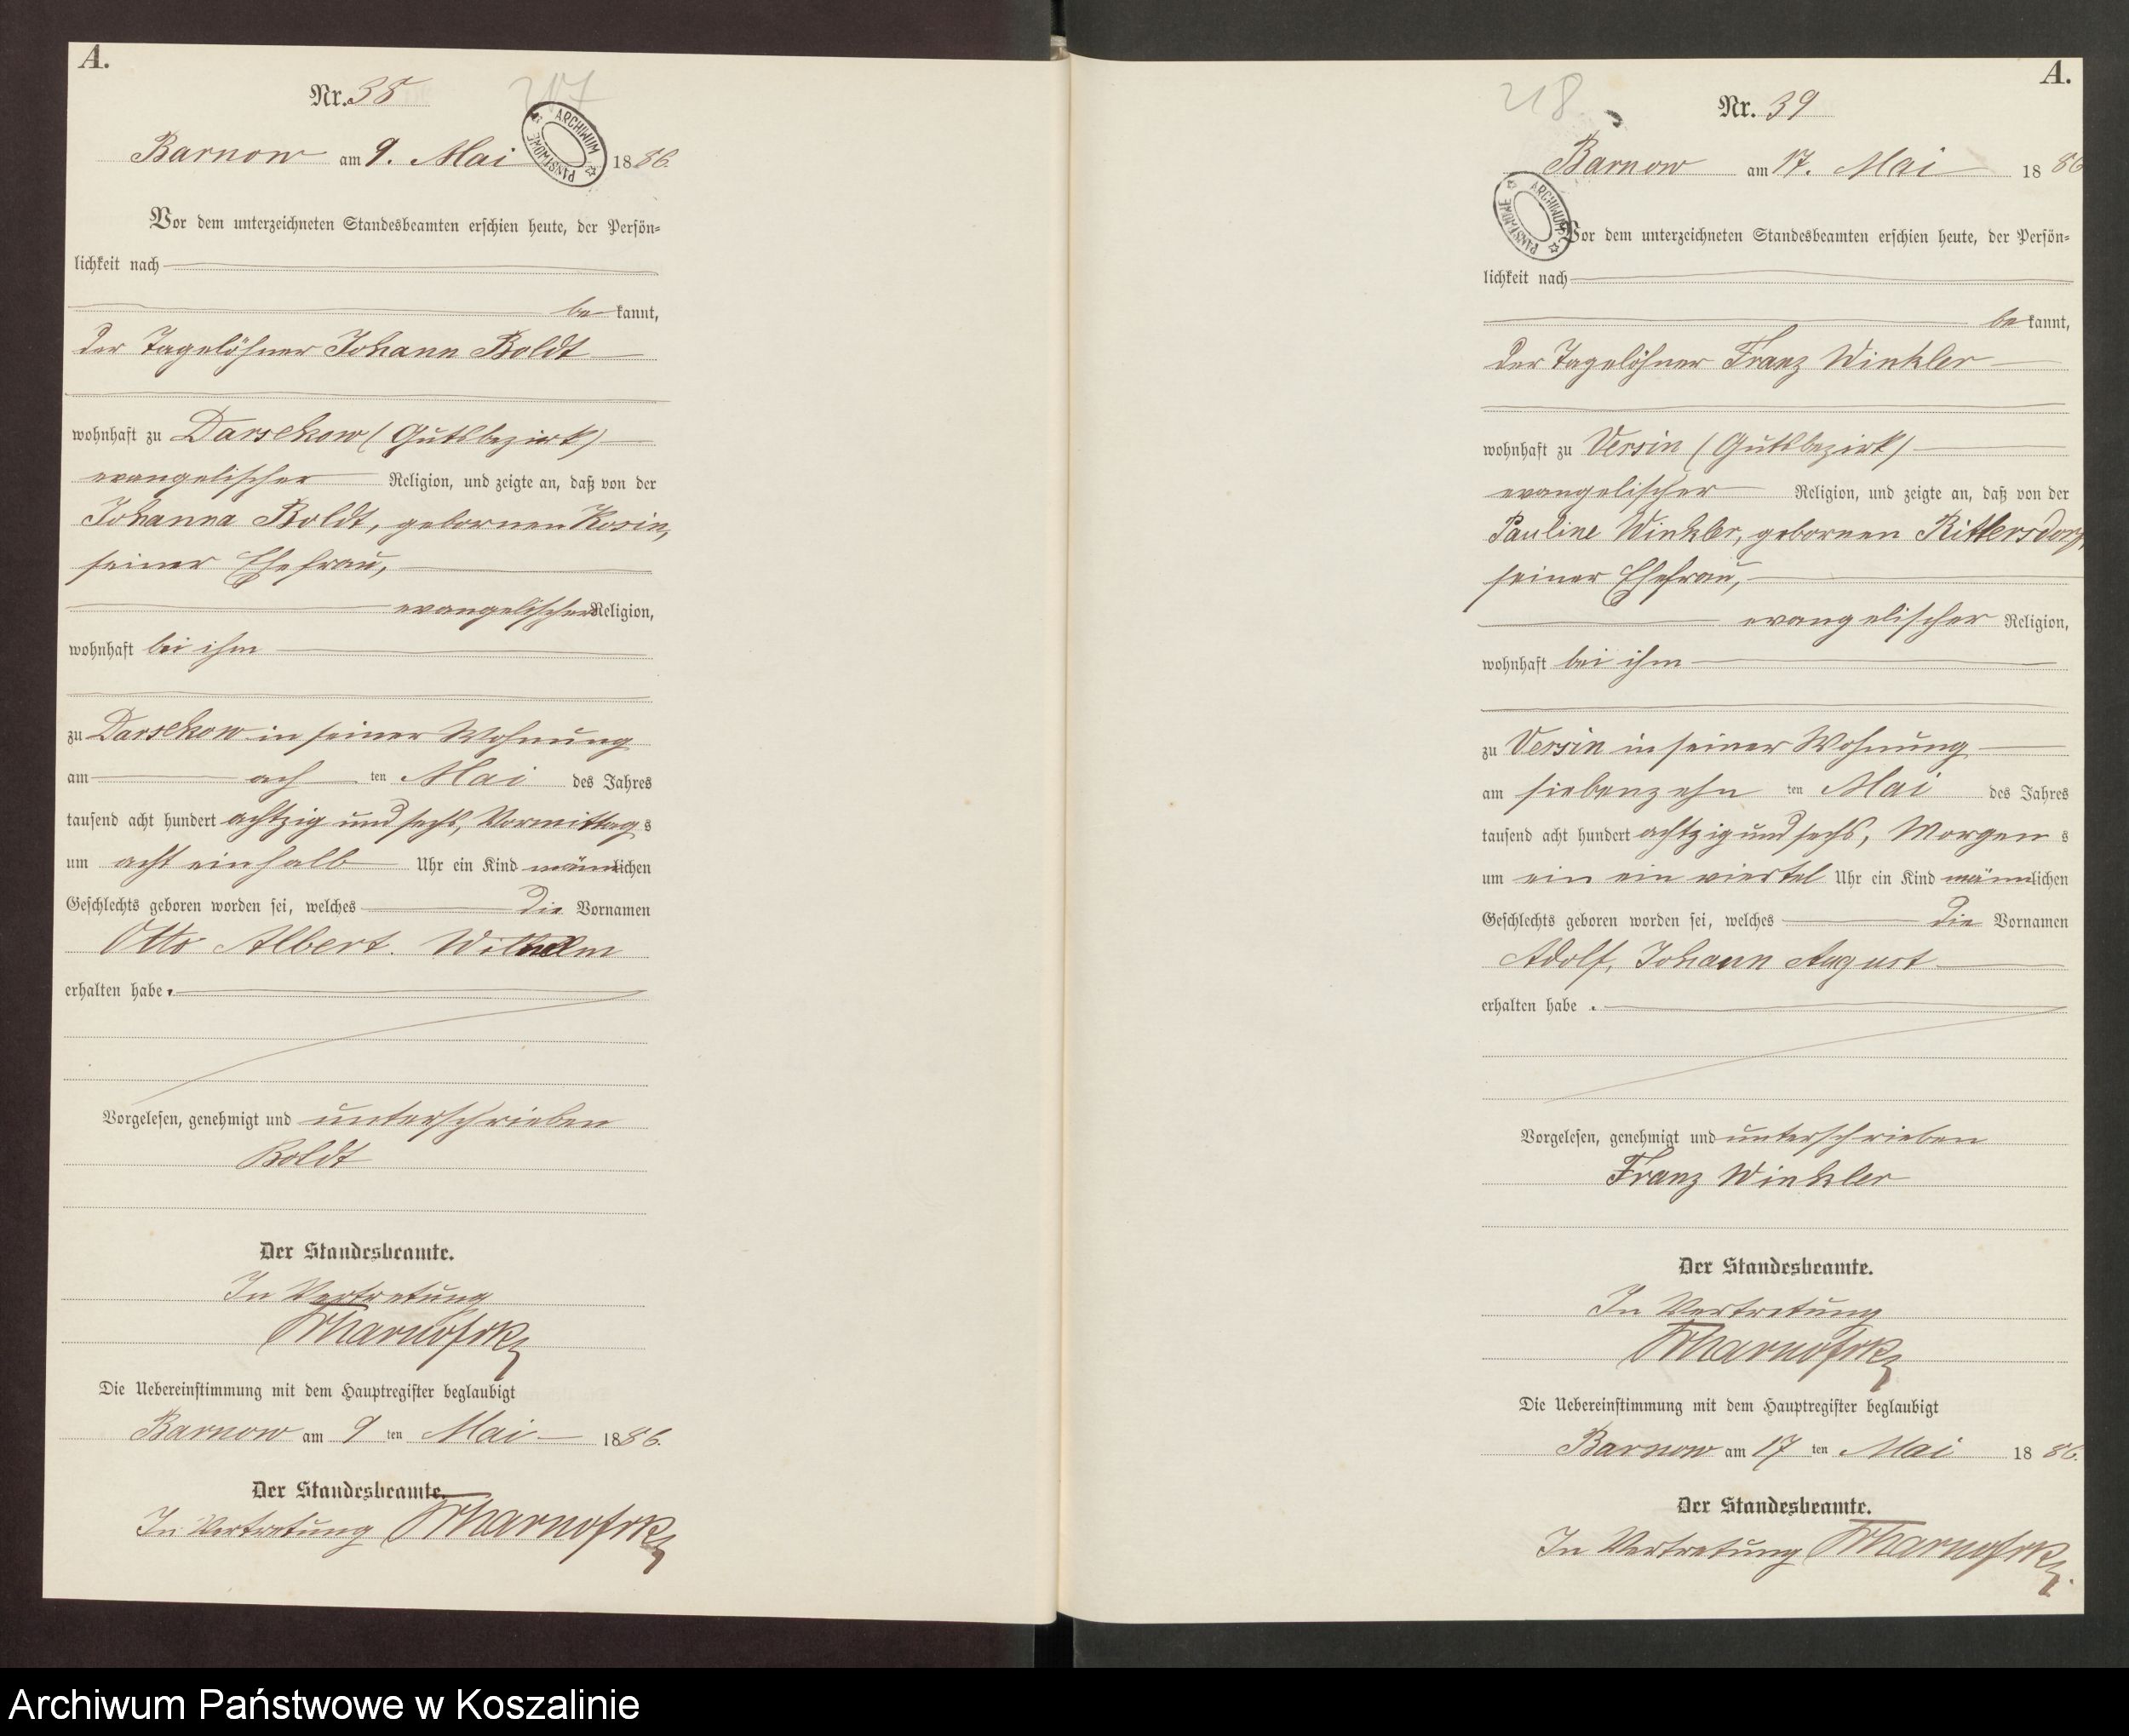 A.
Nr. 38
217
ARCHIWUM PAŃSTWOWE
Barnow am 9. Mai 1886.
Vor dem unterzeichneten Standesbeamten erschien heute, der Persön=
lichkeit nach
be kannt,
der Tagelöhner Johann Boldt
wohnhaft zu Darsekow (Gutsbezirk)
evangelischer Religion, und zeigte an, daß von der
Johanna Boldt, gebornen Kosin,
seiner Ehefrau,
evangelischer Religion,
wohnhaft bei ihm
zu Darsekow in seiner Wohnung
am ach ten Mai des Jahres
tausend acht hundert achtzig und sechs, Vormittag s
um acht einhalb Uhr ein Kind männlichen
Geschlechts geboren worden sei, welches die Vornamen
Otto Albert. Wilhelm
erhalten habe.
Vorgelesen, genehmigt und unterschrieben
Boldt
Der Standesbeamte.
In Vertretung
Die Uebereinstimmung mit dem Hauptregister beglaubigt
Barnow am 9 ten Mai 1886.
Der Standesbeamte.
In Vertretung
A.
218
Nr. 39
ARCHIWUM PAŃSTWOWE
Barnow am 17. Mai 1886
Vor dem unterzeichneten Standesbeamten erschien heute, der Persön=
lichkeit nach
be kannt,
der Tagelöhner Franz Winkler
wohnhaft zu Versin (Gutsbezirk)
evangelischer Religion, und zeigte an, daß von der
Pauline Winkler, gebornen Rittersdorf,
seiner Ehefrau,
evangelischer Religion,
wohnhaft bei ihm
zu Versin in seiner Wohnung
am siebenzehn ten Mai des Jahres
tausend acht hundert achtzig und sechs, Morgen s
um ein ein viertel Uhr ein Kind männlichen
Geschlechts geboren worden sei, welches die Vornamen
Adolf, Johann August
erhalten habe.
Vorgelesen, genehmigt und unterschrieben
Franz Winkler
Der Standesbeamte.
In Vertretung
Die Uebereinstimmung mit dem Hauptregister beglaubigt
Barnow am 17 ten Mai 1886.
Der Standesbeamte.
In Vertretung
Archiwum Państwowe w Koszalinie